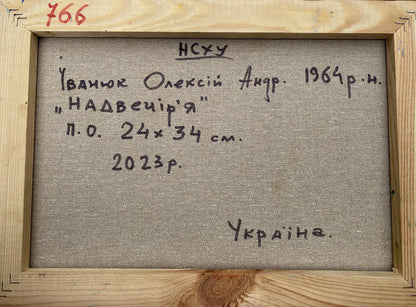 766
НСХУ
Іванюк Олексій Андр. 1964 р.н.
„НАДВЕЧІР'Я"
п.о. 24х34 см.
2023 р.
Україна.